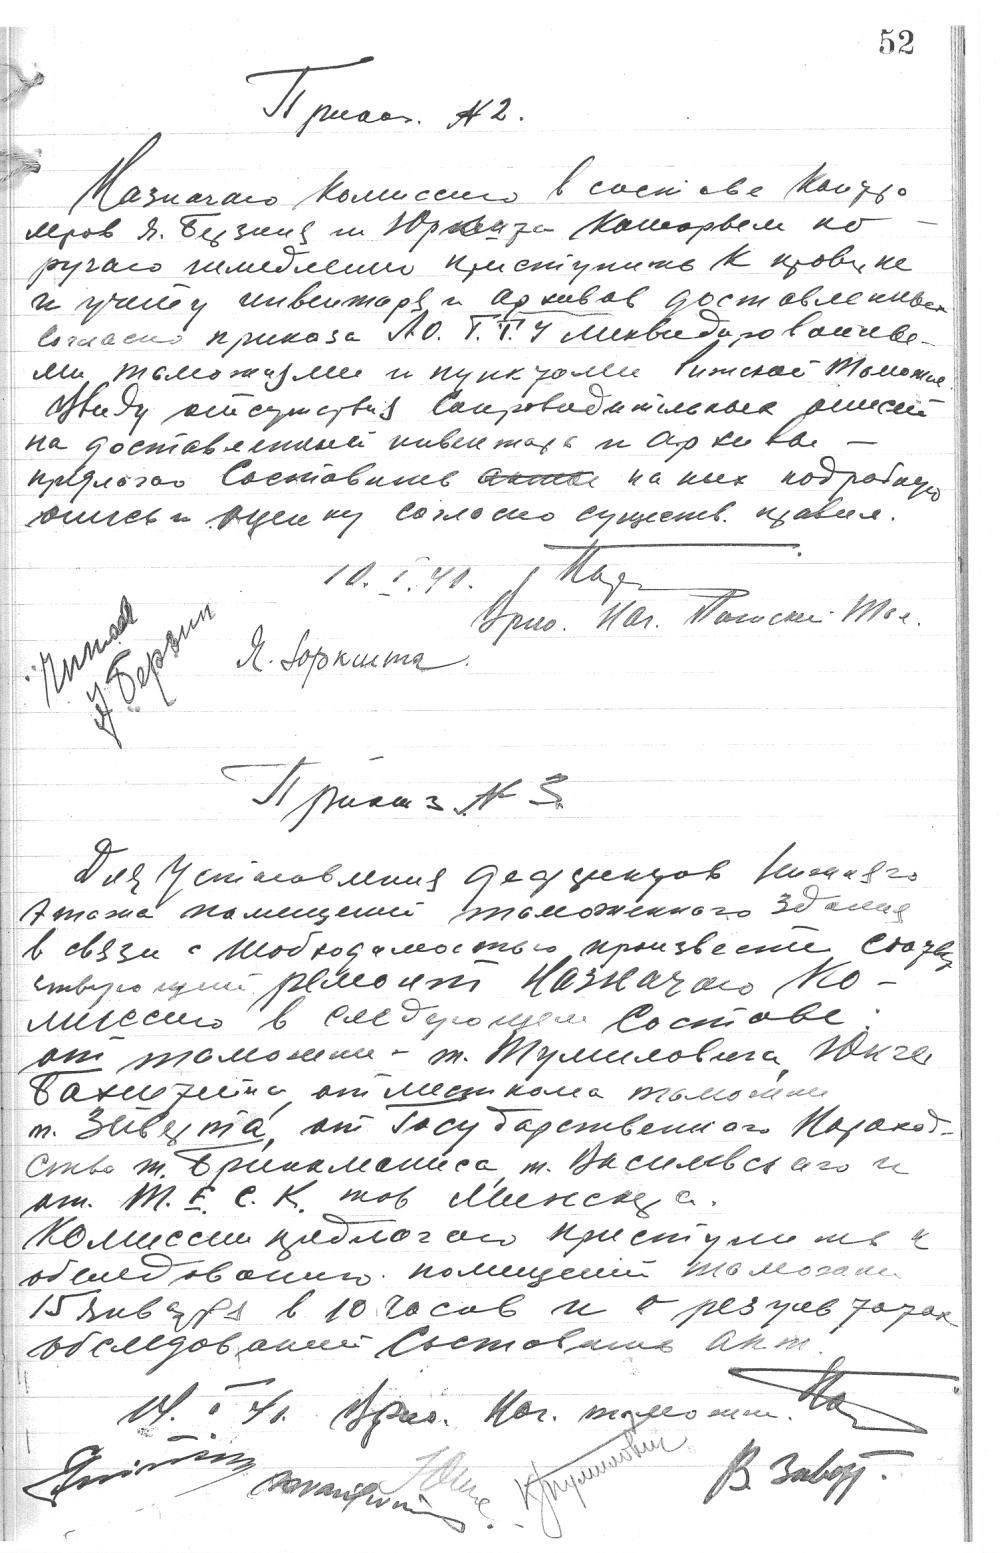 52
Приказ. № 2.
Назначаю Комиссию в составе Контро
леров Я. Берзиня и Юркшта которым по –
ручаю немедленно приступить к проверке
и учёту инвентаря и архивов доставленных
согласно приказа Л.О. Г.Т.У ликвидированны–
ми таможнями и пунктами Рижской Таможне.
Ввиду отсутствия Сопроводительных описей
на доставленный инвентарь и архивы –
предлагаю Составить на них подробную
опись и оценку согласно существ. правил.
10. I. 41.
Врио. Нач. Рижской Там.
Читал
Я Берзин
Я. Юркшта.
Приказ № 3.
Для Установления дефектов Нижнего
этажа помещений таможенного здания
в связи с необходимостью произвести соответ
ствующий ремонт Назначаю Ко –
миссию в следующем Составе:
от таможни – т. Тумиловича, Юкче
от месткома таможни
т. от Государственного Пароход–
ства т. Бринкманиса, т. Василевского и
от. Т. Е. С. К. тов
Комиссии предлагаю приступить к
обследованию помещений таможни
15 января в 10 часов и о результатах
обследований Составить акт.
14. I 41. Врио. Нач. таможни.
Юкче
К Тумилович